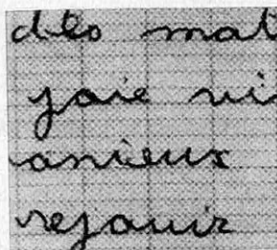 des mat
joie vi
anieux
rejouir